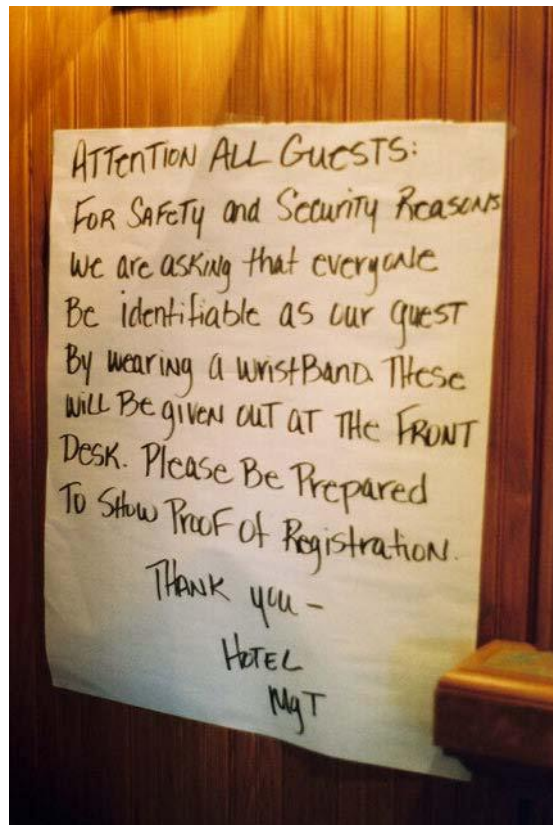 ATTENTION ALL GUESTS:
FOR SAFETY and Security Reasons
We are asking that everyone
Be identifiable as our guest
By wearing a wristBand. These
will Be given out at the Front
Desk. Please Be Prepared
To Show Proof of Registration.
Thank you -
Hotel
MgT